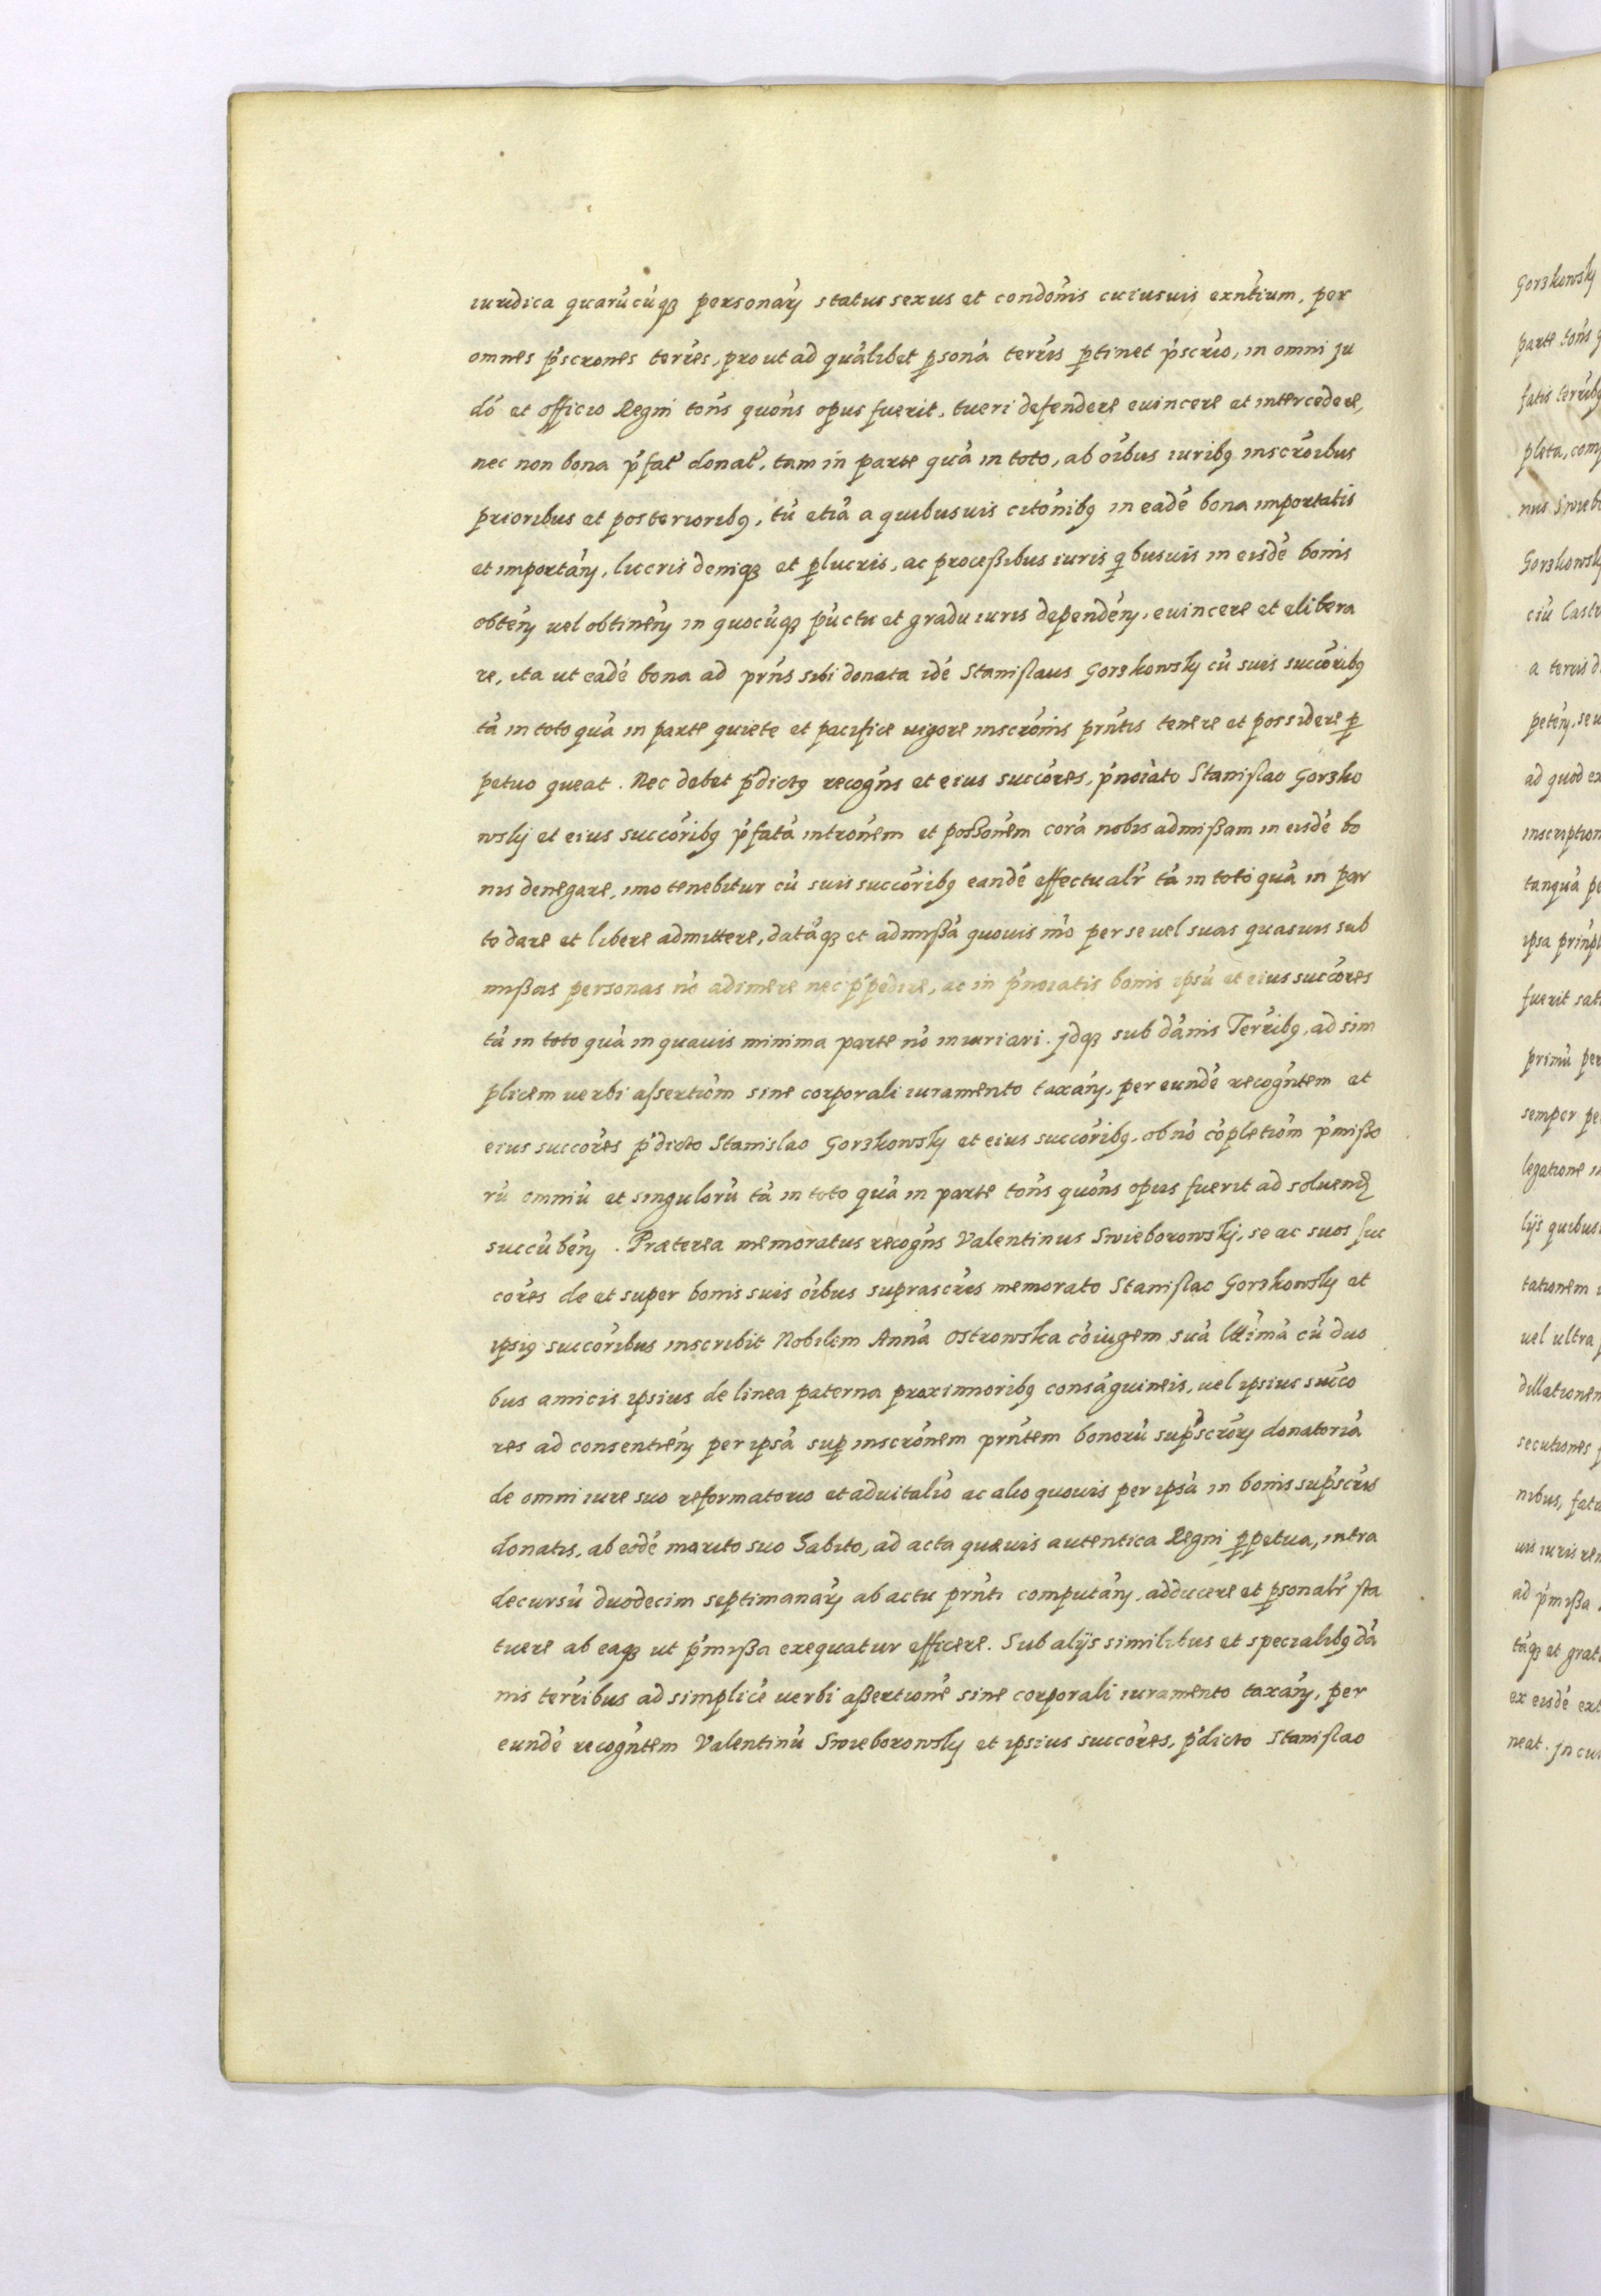 iuridica quarũcũq3 personarꝫ status sexus et condõnis cuiusuis exñtium, per
omnes p̃scrones terr̃es, prout ad quãlibet ꝑsonã terr̃is ꝑtinet p̃scrio, in omni ju
dõ et officio Regni tõns quõns opus fuerit, tueri defendere euincere et intercedere,
nec non bona p̃fat̃ donat̃, tam in parte quã in toto, ab õibus iuribꝫ inscrõibus
prioribus et posterioribꝫ, tũ etiã a quibusuis citõnibꝫ in eadẽ bona importatis
et importãnꝫ, lucris deniq3 et ꝑlucris, ac proceßibus iuris qbusuis in eisdẽ bonis
obtẽnꝫ uel obtinẽnꝫ in quocũq3 pũctu et gradu iuris dependẽnꝫ, euincere et elibera
re, ita ut eadẽ bona ad prñs sibi donata idẽ Stanislaus Gorzkowsky cũ suis succõribꝫ
tã in toto quã in parte quiete et pacifice uigore inscrõnis prñtis tenere et possidere ꝑ
petuo queat. Nec debet p̃dictꝫ recogñs et eius succõres, p̃noĩato Stanislao Gorzko
wsky et eius succõribꝫ p̃fatã intrõnem et poßõnem corã nobis admißam in eisdẽ bo
nis denegare, imo tenebitur cũ suis succõribꝫ eandẽ effectualr̃ tã in toto quã in par
te dare et libere admittere, datãq3 et admißã quouis mõ per se uel suas quasuis sub
mißas personas nõ adimere nec p̃pedire, ac in p̃noĩatis bonis ipsũ et eius succõres
tã in toto quã in quauis minima parte nõ iniuriari. jdq3 sub dãnis Terr̃ibꝫ, ad sim
plicem uerbi assertiõm sine corporali iuramento taxãnꝫ, per eundẽ recogñtem et
eius succõres p̃dicto Stanislao Gorzkowsky et eius succõribꝫ, ob nõ cõpletiõm p̃mißo
rũ omniũ et singulorũ tã in toto quã in parte tõns quõns opus fuerit ad soluenđ
succũbẽnꝫ. Præterea memoratus recogñs Valentinus Swieborowsky, se ac suos suc
cõres de et super bonis suis õibus suprascr̃is memorato Stanislao Gorzkowsky et
ipsiꝫ succõribus inscribit Nobilem Annã Ostrowska cõiugem suã lt̃imã cũ duo
bus amicis ipsius de linea paterna proximioribꝫ consãguineis, uel ipsius succo
res ad consentiẽnꝫ per ipsã suꝑ inscrõnem prñtem bonorũ sup̃scrõrꝫ donatoriã
de omni iure suo reformatorio et aduitalio ac alio quouis per ipsã in bonis sup̃scr̃is
donatis, ab eodẽ marito suo habito, ad acta quæuis autentica Regni ꝑpetua, intra
decursũ duodecim septimanarꝫ ab actu prñti computãnꝫ, adducere et ꝑsonalr̃ sta
tuere ab eaq3 ut p̃mißa exequatur efficere. Sub alijs similibus et specialibꝫ dã
nis terr̃ibus ad simplicẽ uerbi aßertionẽ sine corporali iuramento taxãnꝫ, per
eundẽ recogñtem Valentinũ Swieborowsky et ipsius succõres, p̃dicto Stanislao
Gorzkowsky
parte tõns
fatis terr̃ibꝫ
pleta,
nus
Gorzkowsky
ciũ
a terr̃is
petẽnꝫ,
ad quod
tanquã
ipsa
fuerit
primũ
semper
legatione
lijs
tationem
uel ultra
dillationem
secutiones
nibus,
uis iuris
ad p̃mißa
tãq3 et
ex eisdẽ
neat. jn